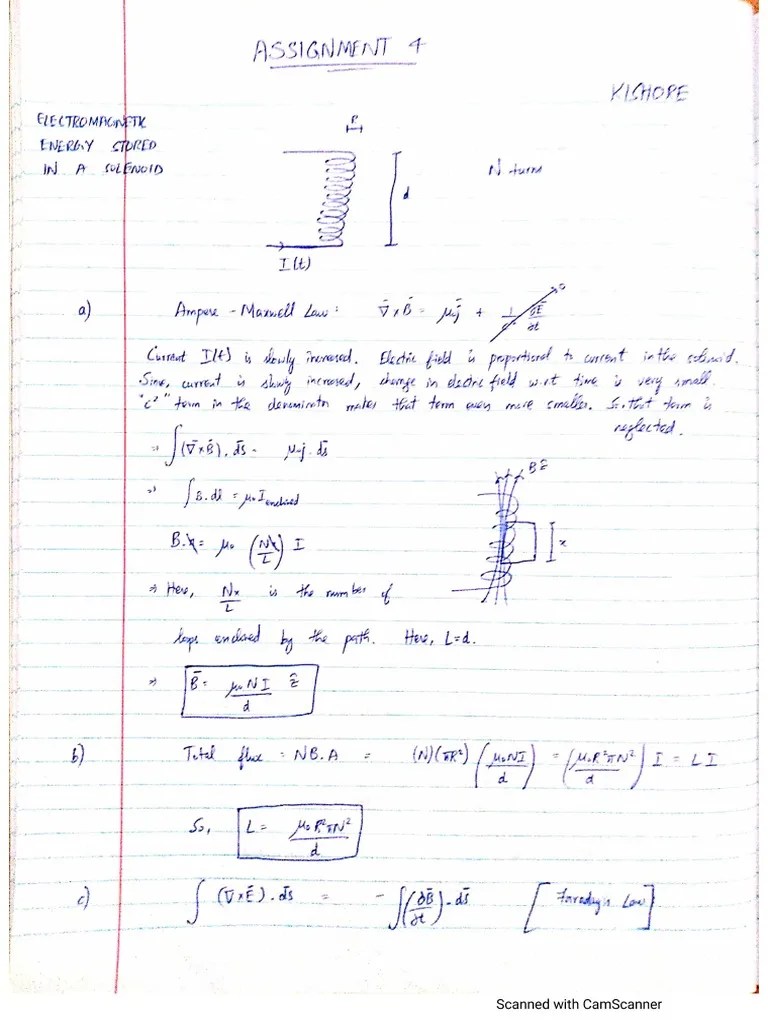 ASSIGNMENT 4
KISHORE
ELECTROMAGNETIC
ENERGY STORED
IN A SOLENOID
R
d
N turns
I(t)
a) Ampere - Maxwell Law: ∇̄ × B̄ = μ₀j̄ + 1/c² ∂Ē/∂t → 0
Current I(t) is slowly increased. Electric field is proportional to current in the solenoid.
Since, current is slowly increased, change in electric field w.r.t time is very small.
"c²" term in the denominator makes that term even more smaller. So that term is
neglected.
⇒ ∫(∇̄×B̄). ds̄ = μ₀j. ds̄
⇒ ∫B.dl = μ₀ I enclosed
B ẑ
x
B.x = μ₀ (Nx/L) I
⇒ Here, Nx/L is the number of
loops enclosed by the path. Here, L=d.
⇒ B̄ = μ₀NI/d ẑ
b) Total flux = NB.A = (N)(πR²)(μ₀NI/d) = (μ₀R²πN²/d) I = LI
So, L = μ₀R²πN²/d
c) ∫(∇̄×Ē). ds̄ = -∫(∂B̄/∂t). ds̄ [Faraday's Law]
Scanned with CamScanner